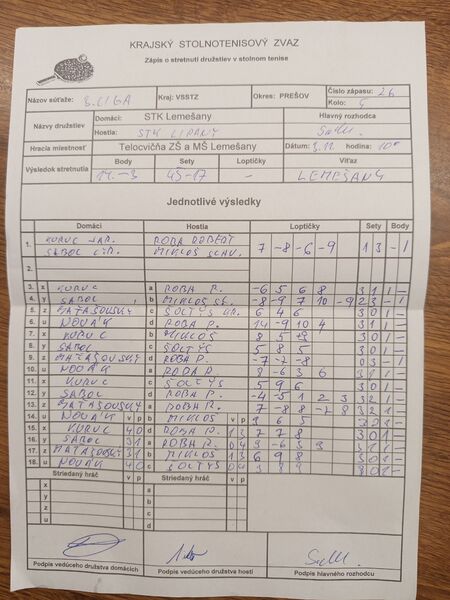 KRAJSKÝ STOLNOTENISOVÝ ZVAZ
Zápis o stretnutí družstiev v stolnom tenise
Názov súťaže: Kraj: VSSTZ Okres: PREŠOV Číslo zápasu: 26
Kolo: 5
Názvy družstiev Domáci: STK Lemešany Hlavný rozhodca
Hostia: STK LIPANY
Hracia miestnosť Telocvičňa ZŠ a MŠ Lemešany Dátum: hodina:
Výsledok stretnutia Body Sety Loptičky Víťaz
45-17 LEMEŠANY
Jednotlivé výsledky
Domáci Hostia Loptičky Sety Body
1. KURUC ROBA ROBERT 7 -8 -6 -9 1 3 - 1
SABOL MIKLOŠ
2.
3. x KURUC a ROBA R. -6 5 6 8 3 1 1 -
4. y SABOL b MIKLOŠ -8 -9 7 10 -9 2 3 - 1
5. z MATAŠOVSKÝ c ŠOLTÝS 6 4 6 3 0 1 -
6. u NOVÁK d ROBA P. 14 -9 10 4 3 1 1 -
7. x KURUC b MIKLOŠ 3 0 1 -
8. y SABOL c ŠOLTÝS 5 8 5 3 0 1 -
9. z MATAŠOVSKÝ d ROBA P. -7 -7 -8 0 3 - 1
10. u NOVÁK a ROBA R. 8 -6 3 6 3 1 1 -
11. x KURUC c ŠOLTÝS 5 9 6 3 0 1 -
12. y SABOL d ROBA P. -4 -5 1 2 3 3 2 1 -
13. z MATAŠOVSKÝ a ROBA R. 7 -8 8 8 3 2 1 -
14. u NOVÁK v p b MIKLOŠ v p 6 5 3 0 1 -
15. x KURUC 4 0 d ROBA P. 7 7 8 3 0 1 -
16. y SABOL 3 1 a ROBA R. 0 4 3 1 1 -
17. z MATAŠOVSKÝ 3 1 b MIKLOŠ 1 3 6 9 8 3 0 1 -
18. u NOVÁK 4 0 c ŠOLTÝS 0 4 3 0 1 -
Striedaný hráč v p Striedaný hráč v p
x a
y b
z c
u d
Podpis vedúceho družstva domácich Podpis vedúceho družstva hostí Podpis hlavného rozhodcu